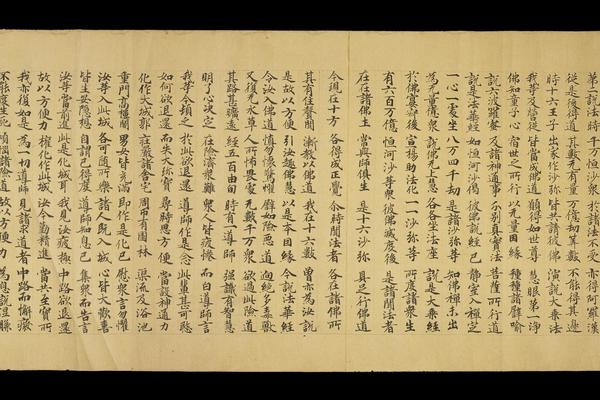 第二說法時 千萬恒沙眾 於諸法不受 亦得阿羅漢
從是後得道 其數無有量 万億劫筭數 不能得其邊
時十六王子 出家作沙弥 皆共請彼佛 演說大乘法
我等及營從 皆當成佛道 願得如世尊 慧眼第一淨
佛知童子心 宿世之所行 以無量因緣 種種諸譬喻
說六波羅蜜 及諸神通事 分別真實法 菩薩所行道
說是法華經 如恒河沙偈 彼佛說經已 靜室入禪定
一心一處坐 八万四千劫 是諸沙弥等 知佛禪未出
為無量億眾 說佛無上慧 各各坐法座 說是大乘經
於佛宴寂後 宣揚助法化 一一沙弥等 所度諸眾生
有六百万億 恒河沙等眾 彼佛滅度後 是諸聞法者
在在諸佛土 常與師俱生 是十六沙弥 具足行佛道
今現在十方 各得成正覺 尒時聞法者 各在諸佛所
其有住聲聞 漸教以佛道 我在十六數 曾亦為汝說
是故以方便 引汝趣佛慧 以是本因緣 今說法華經
令汝入佛道 慎勿懷驚懼 譬如險惡道 迥絕多毒獸
又復無水草 人所怖畏處 無數千万眾 欲過此險道
其路甚曠遠 經五百由旬 時有一導師 強識有智慧
明了心決定 在險濟眾難 眾人皆疲惓 而白導師言
我等今頓乏 於此欲退還 導師作是念 此輩甚可愍
如何欲退還 而失大珍寶 尋時思方便 當設神通力
化作大城郭 莊嚴諸舍宅 周帀有園林 渠流及浴池
重門高樓閣 男女皆充滿 即作是化已 慰眾言勿懼
汝等入此城 各可隨所樂 諸人既入城 心皆大歡喜
皆生安隱想 自謂已得度 導師知息已 集眾而告言
汝等當前進 此是化城耳 我見汝疲極 中路欲退還
故以方便力 權化作此城 汝今勤精進 當共至寶所
我亦復如是 為一切導師 見諸求道者 中路而懈廢
不能度生死 煩惱諸險道 故以方便力 為息說涅槃